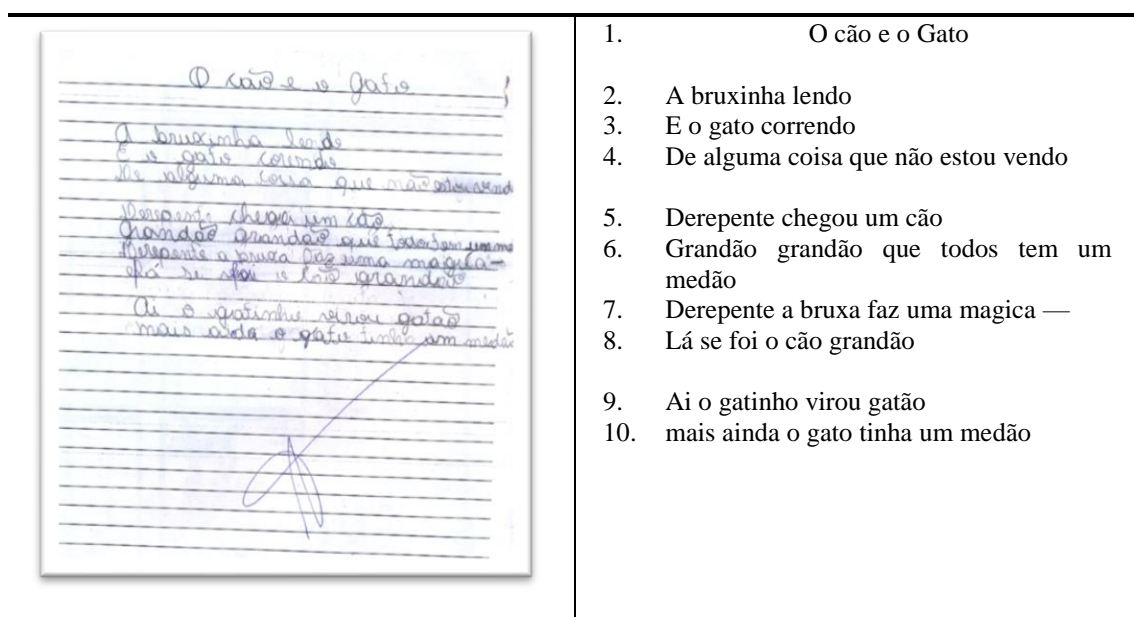 O cão e o gato
A bruxinha lendo
E o gato corendo
De alguma coisa que não estou vend
Derepente chega um cão
Grandão grandão que todos tem um me
Derepente a bruxa faz uma magica —
Lá se foi o cão grandão
Ai o gatinho virou gatão
mais aida o gato tinha um medão
1. O cão e o Gato
2. A bruxinha lendo
3. E o gato correndo
4. De alguma coisa que não estou vendo
5. Derepente chegou um cão
6. Grandão grandão que todos tem um
medão
7. Derepente a bruxa faz uma magica —
8. Lá se foi o cão grandão
9. Ai o gatinho virou gatão
10. mais ainda o gato tinha um medão